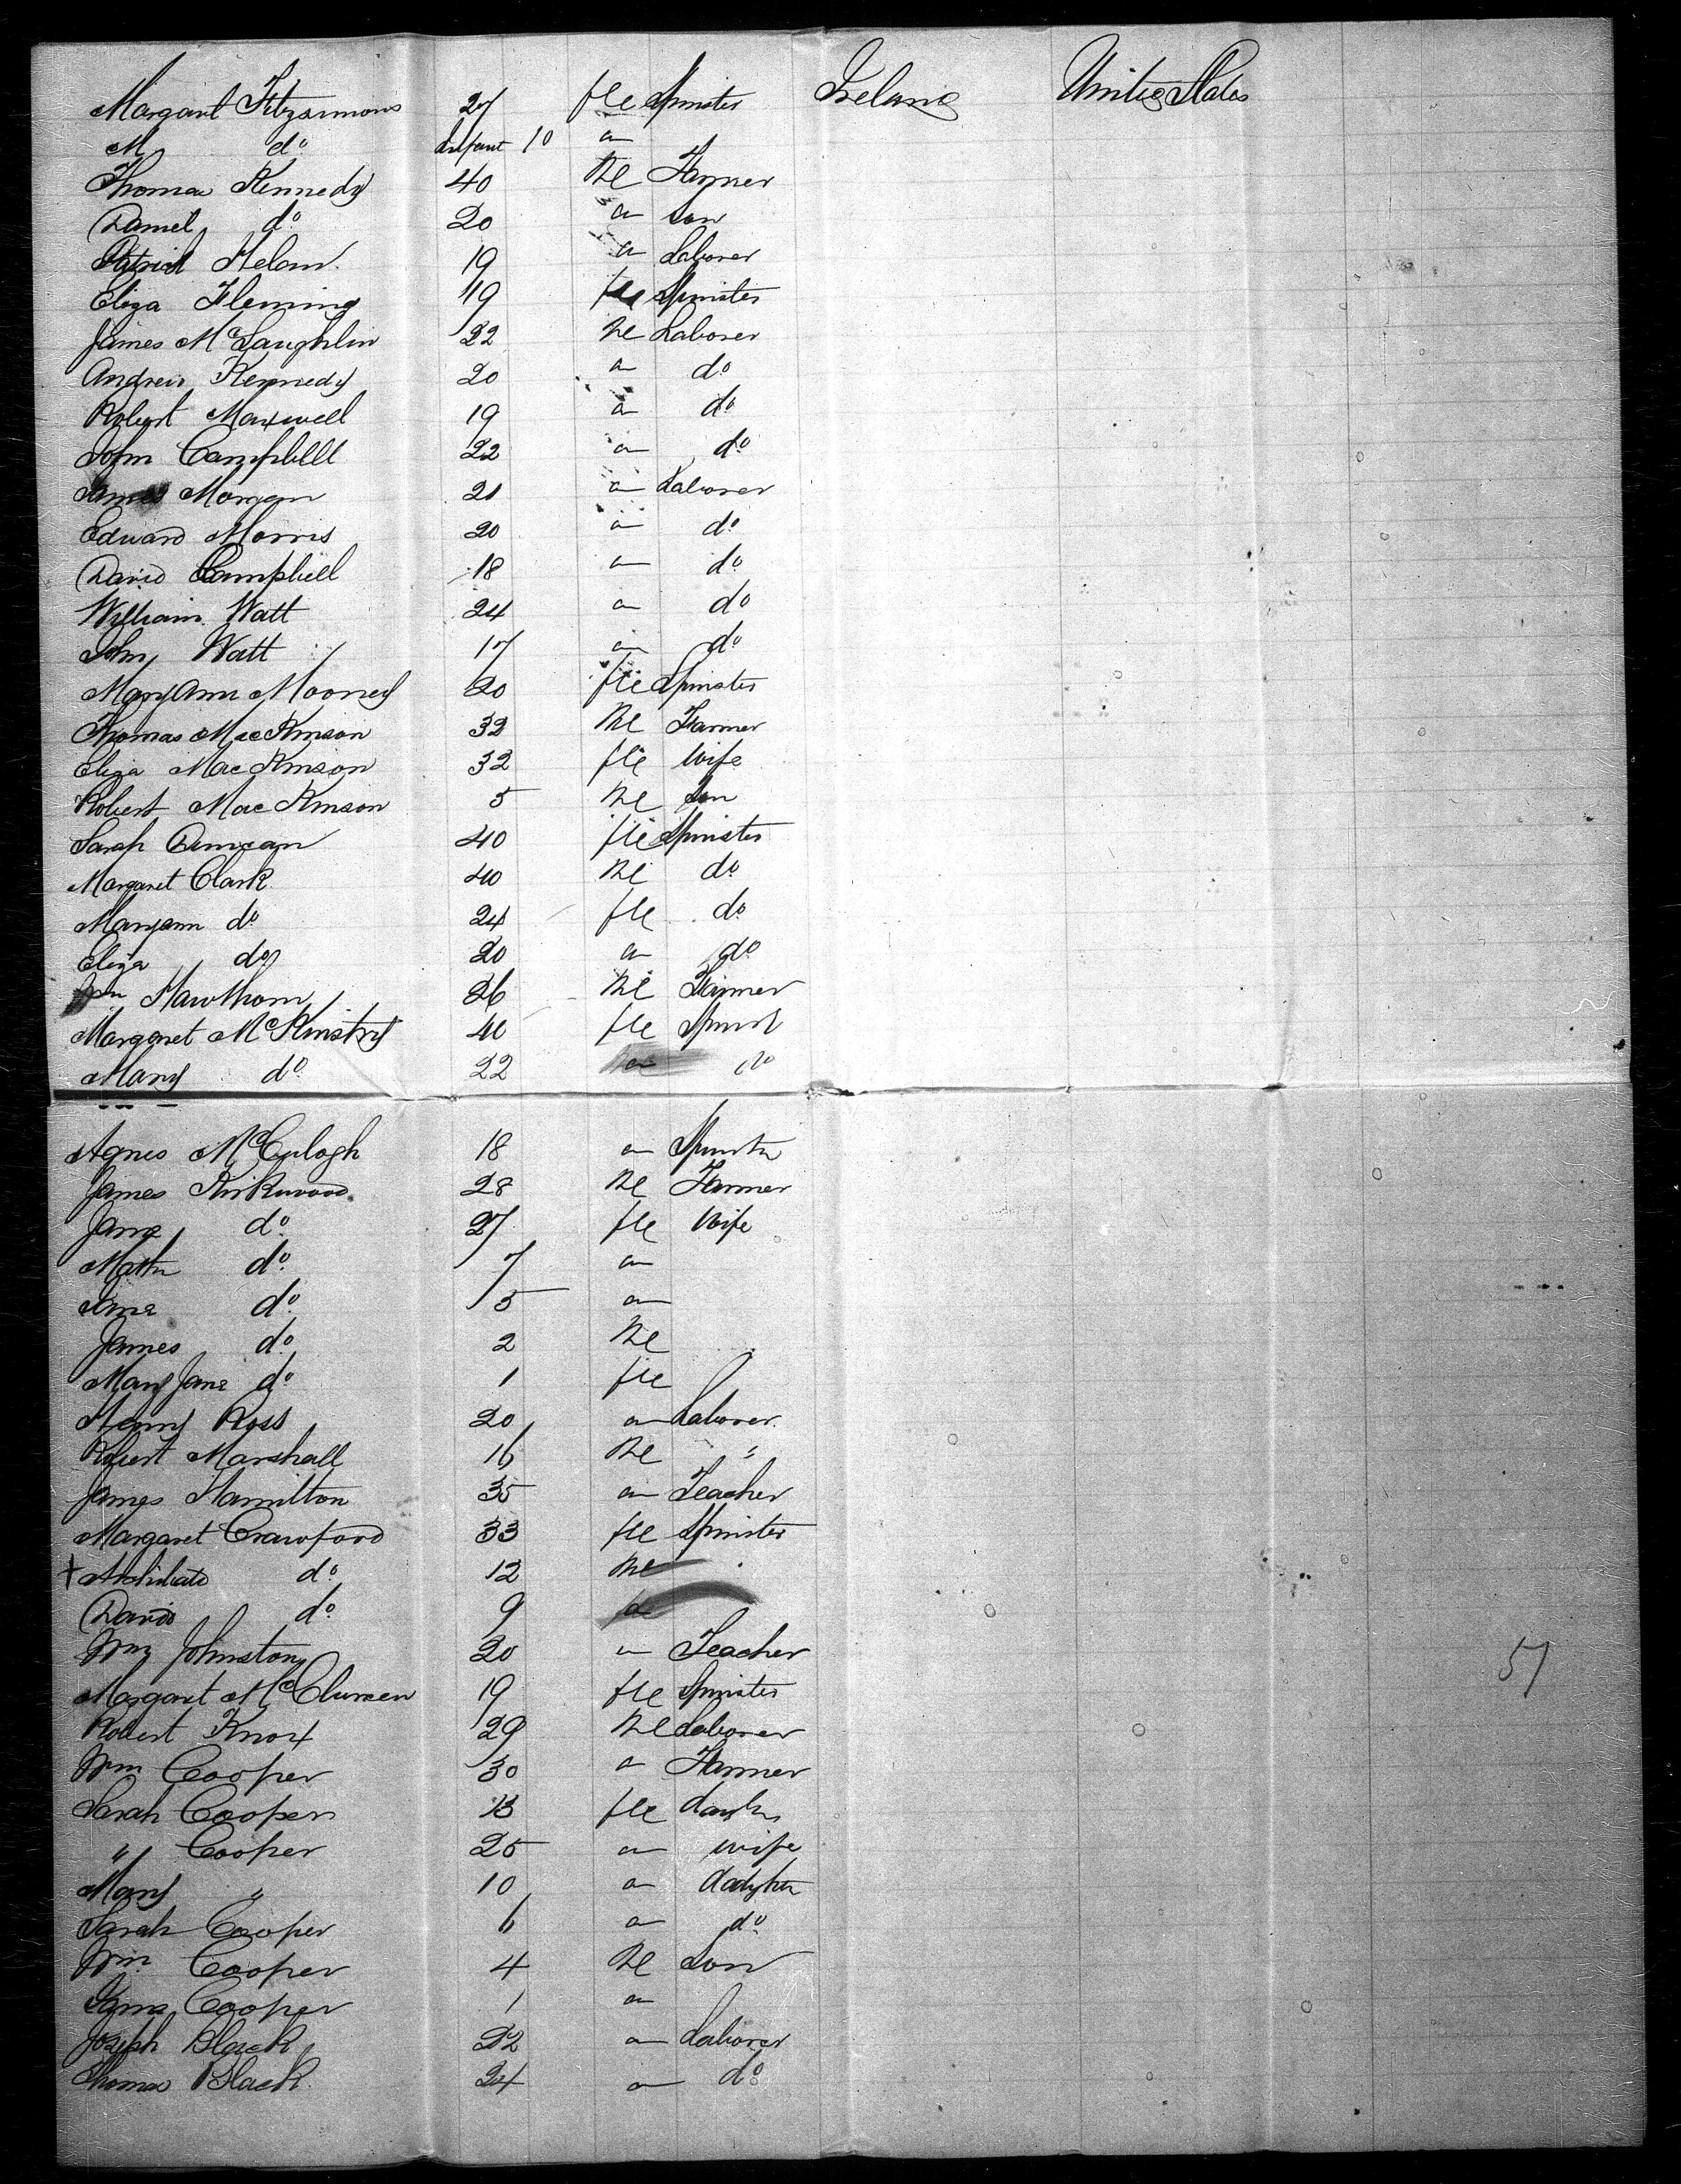 Margaret Fitzsimmons 27 fle Spinster Ireland United States
M do Infant 10 "
Thomas Kennedy 40 Me Farmer
Daniel do 20 " Son
Patrick Helam 19 " Laborer
Eliza Fleming 19 fle Spinster
James McLaughlin 22 Me Laborer
Andrew Kennedy 20 " do
Robert Maxwell 19 " do
John Campbell 22 " do
James Morgan 21 " Laborer
Edward Morris 20 " do
David Campbell 18 " do
William Watt 24 " do
John Watt 17 " do
MaryAnn Mooney 20 fle Spinster
Thomas MacKinson 32 Me Farmer
Eliza MacKinson 32 fle Wife
Robert MacKinson 5 Me Son
Sarah Duncan 40 fle Spinster
Margaret Clark 40 Me do
Maryann do 24 fle do
Eliza do 20 " do
Wm Hawthorn 26 Me Farmer
Margaret McKinstry 40 fle Spinst
Mary do 22 " do
Agnes McCulogh 18 " Spinster
James Kirkwood 28 Me Farmer
Jane do 27 fle Wife
Matth do 7 "
Jane do 5 "
James do 2 Me
Mary Jane do 1 fle
Henry Ross 20 " Laborer
Robert Marshall 16 Me "
James Hamilton 35 " Teacher
Margaret Crawford 33 fle Spinster
+ do 12 Me
David do 9
Wm Johnston 20 " Teacher 57
Margaret 19 fle Spinster
Robert Knox 29 Me Laborer
Wm Cooper 30 " Farmer
Sarah Cooper 13 fle
" Cooper 25 " wife
Mary " 10 " daughter
Sarah Cooper 6 " do
Wm Cooper 4 Me Son
Jane Cooper 1 "
Joseph Black 22 " Laborer
Thomas Black 24 " do